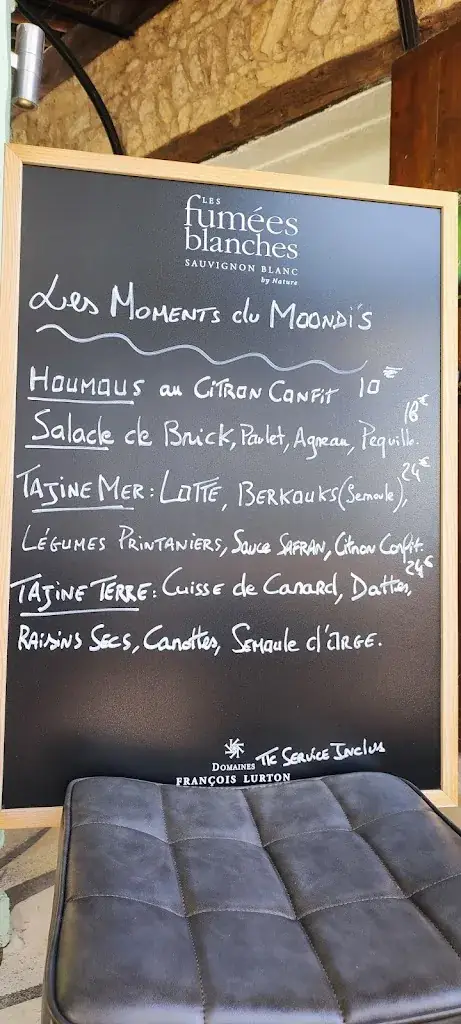 LES
fumées
blanches
SAUVIGNON BLANC
by Nature
Les MOMENTS du MOONDI'S
HOUMOUS au CITRON CONFIT 10€
18€
Salade de Brick, Poulet, Agneau, Pequillo.
24€
TAJINE MER: LOTTE, BERKOUKS (Semoule),
LÉGUMES PRINTANIERS, Sauce SAFRAN, Citron Confit.
24€
TAJINE TERRE: Cuisse de Canard, Dattes,
RAISINS SECS, Carottes, SEMOULE d'ORGE.
TTC SERVICE INCLUS
DOMAINES
FRANÇOIS LURTON